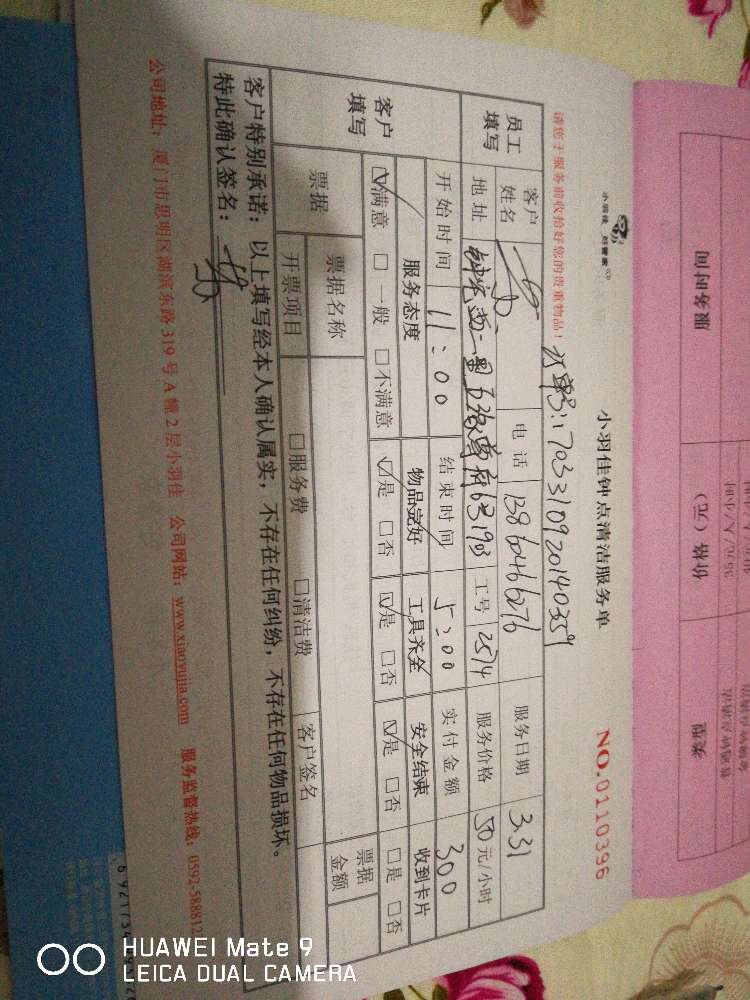 小羽佳钟点清洁服务单
NO.0110396
小羽佳 好管家
请您于服务前收拾好您的贵重物品!
订单号:1703310920140359
员工填写
客户姓名
电话 13860466276
服务日期 3.31
地址
631903
工号 2574
服务价格 50元/小时
开始时间 11:00
结束时间 5:00
实付金额 300
客户填写
服务态度 物品完好 工具齐全 安全结束 收到卡片
☑满意 □一般 □不满意 ☑是 □否 ☑是 □否 ☑是 □否 □是 □否
票据
票据名称
客户签名
票据金额
开票项目 □服务费 □清洁费
客户特别承诺:以上填写经本人确认属实,不存在任何纠纷,不存在任何物品损坏。
特此确认签名:
公司地址:厦门市思明区湖滨东路319号A幢2层小羽佳 公司网站:www.xiaoyujia.com 服务监督热线:0592-588812
服务时间
价格(元)
类型
HUAWEI Mate 9
LEICA DUAL CAMERA